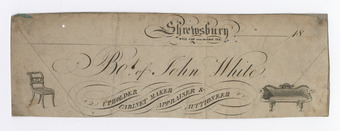 Shrewsbury
18
Bot. of John White
UPHOLDER
CABINET MAKER APPRAISER &
AUCTIONEER